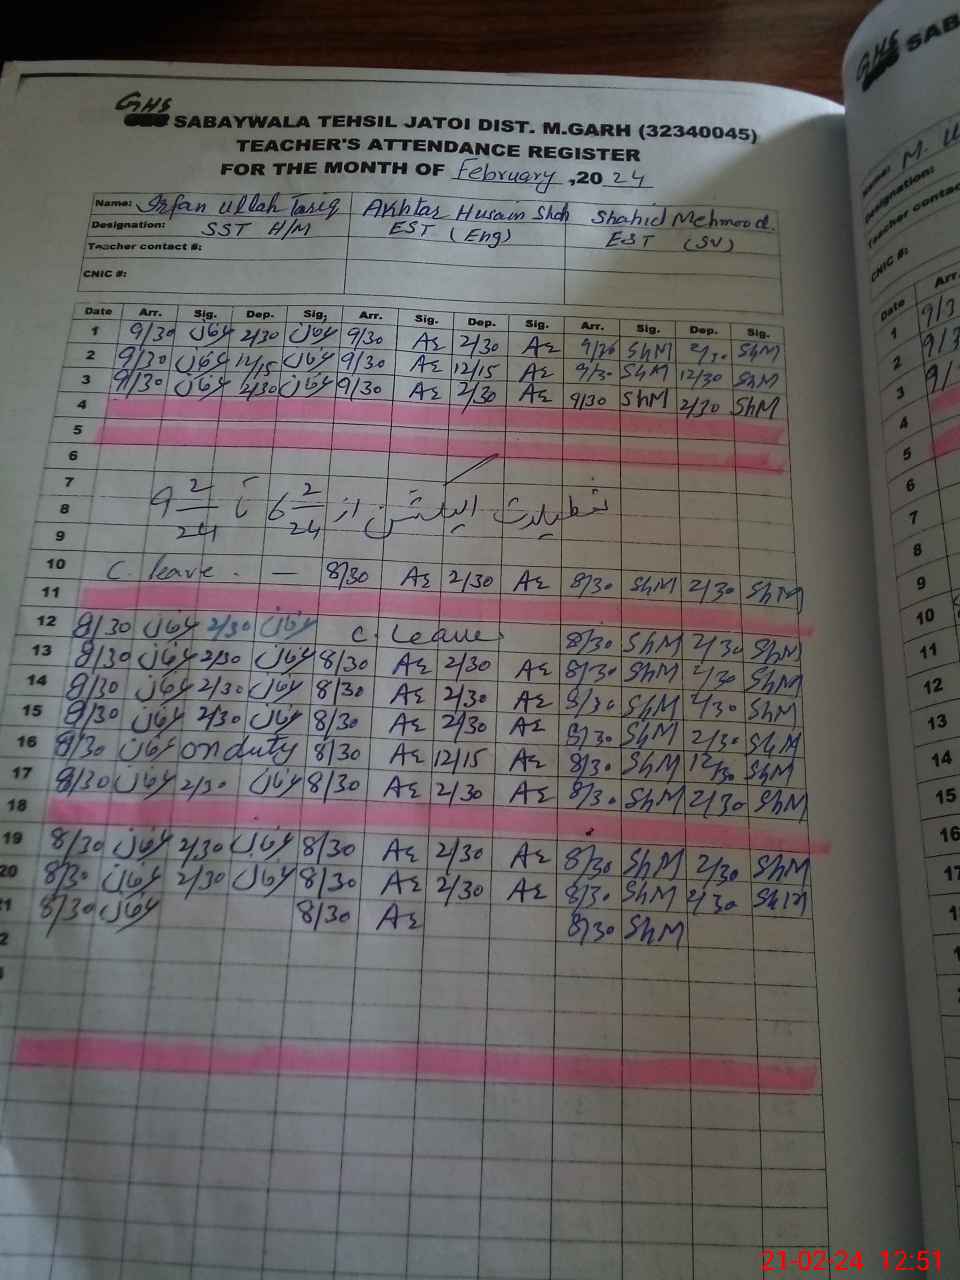 GHS SABAYWALA TEHSIL JATOI DIST. M.GARH (32340045)
TEACHER'S ATTENDANCE REGISTER
FOR THE MONTH OF February ,2024
Name: Irfan Ullah Tariq Akhtar Husain Shah Shahid Mehmood.
Designation: SST H/M EST (Eng) EST (SV)
Teacher contact #:
CNIC #:
Date Arr. Sig. Dep. Sig. Arr. Sig. Dep. Sig. Arr. Sig. Dep. Sig.
1 9/30 2/30 9/30 2/30 ShM 2/30 ShM
2 9/30 12/15 9/30 12/15 9/30 ShM 12/30 ShM
3 9/30 2/30 9/30 2/30 9/30 ShM 2/30 ShM
4
5
6
7
8 تعطیلات الیکشن از 6 2/24 تا 9 2/24
9
10 C. leave. — 8/30 2/30 8/30 ShM 2/30 ShM
11
12 8/30 2/30 C. Leave. 8/30 ShM 2/30 ShM
13 8/30 2/30 8/30 2/30 8/30 ShM 2/30 ShM
14 8/30 2/30 8/30 2/30 8/30 ShM 2/30 ShM
15 8/30 2/30 8/30 2/30 8/30 ShM 2/30 ShM
16 8/30 on duty 8/30 12/15 8/30 ShM 12/30 ShM
17 8/30 2/30 8/30 2/30 8/30 ShM 2/30 ShM
18
19 8/30 2/30 8/30 2/30 8/30 ShM 2/30 ShM
20 8/30 2/30 8/30 2/30 8/30 ShM 2/30 ShM
8/30 8/30 8/30 ShM
GHS SAB
Name: M.
Designation:
Teacher contact
CNIC #:
Date Arr.
1 9/3
2 9/3
3 9/
4
5
6
7
8
9
10
11
12
13
14
15
16
17
21-02-24 12:51